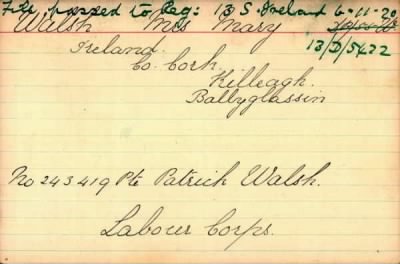 File passed to Reg: 13 S. Ireland 6-11-20
Walsh Mrs Mary
13/D/5422
Ireland.
Co. Cork.
Killeagh.
Ballyglassin
No 243419 Pte Patrick Walsh.
Labour Corps.